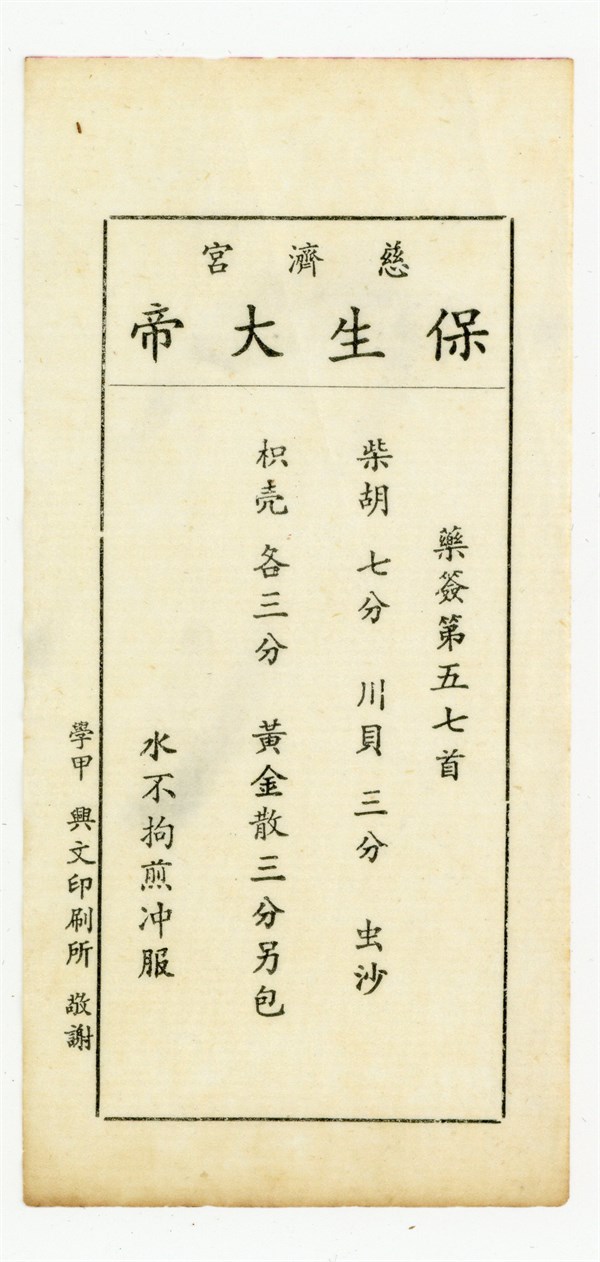 慈濟宮
保生大帝
藥簽第五七首
柴胡 七分 川貝 三分 虫沙
枳壳 各三分 黃金散三分另包
水不拘煎冲服
學甲 興文印刷所 敬謝